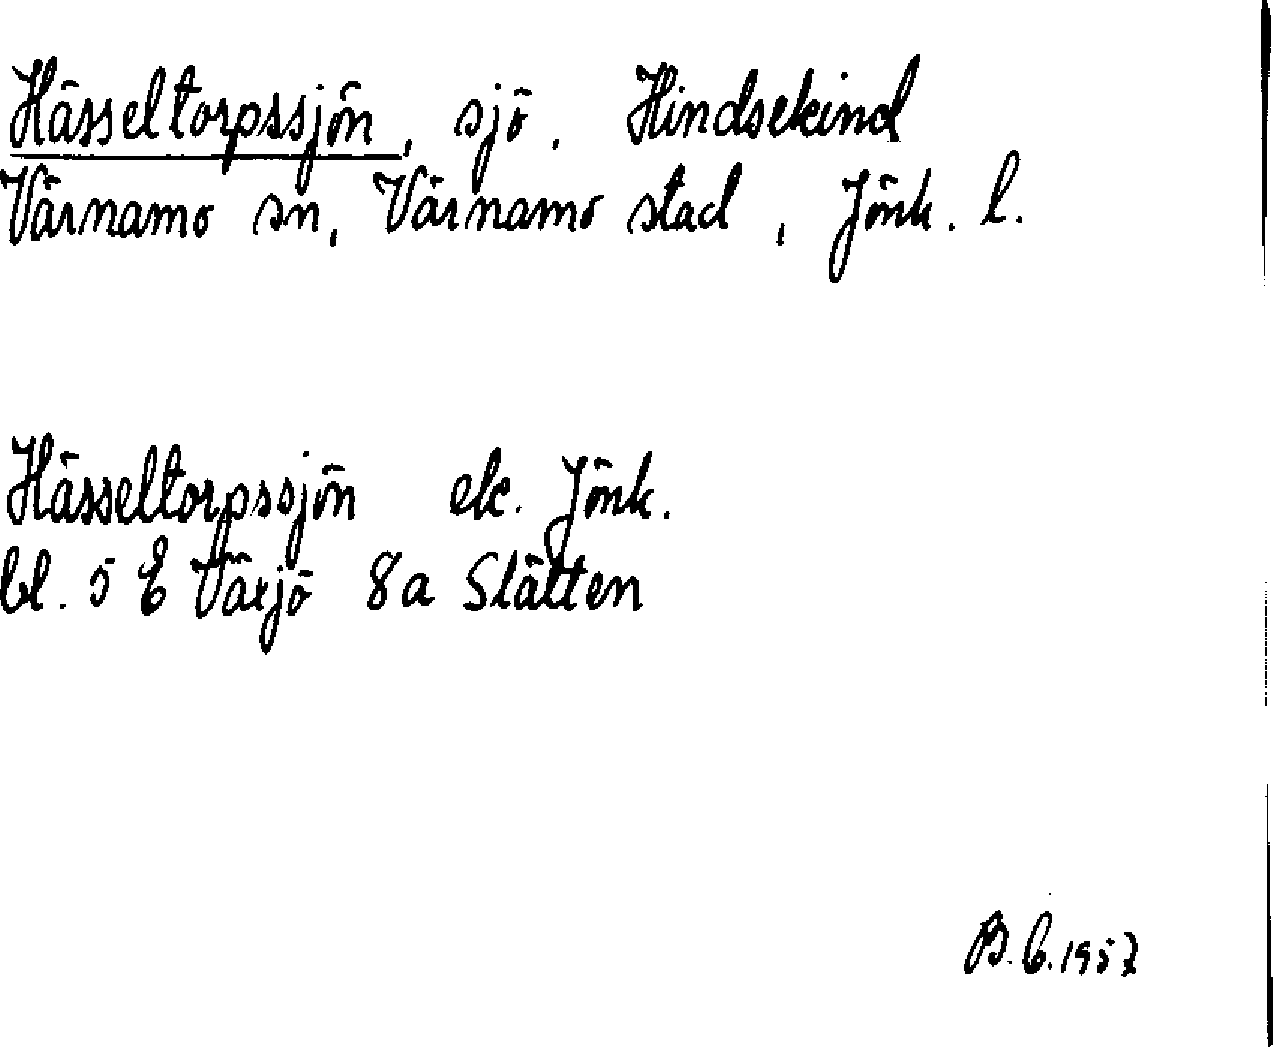 Hässeltorpssjön, sjö. Hindsekind
Värnamo sn, Värnamo stad, Jönk. l.
Hässeltorpssjön ek. Jönk.
bl. 5 E Växjö 8a Slätten
B. C. 1957